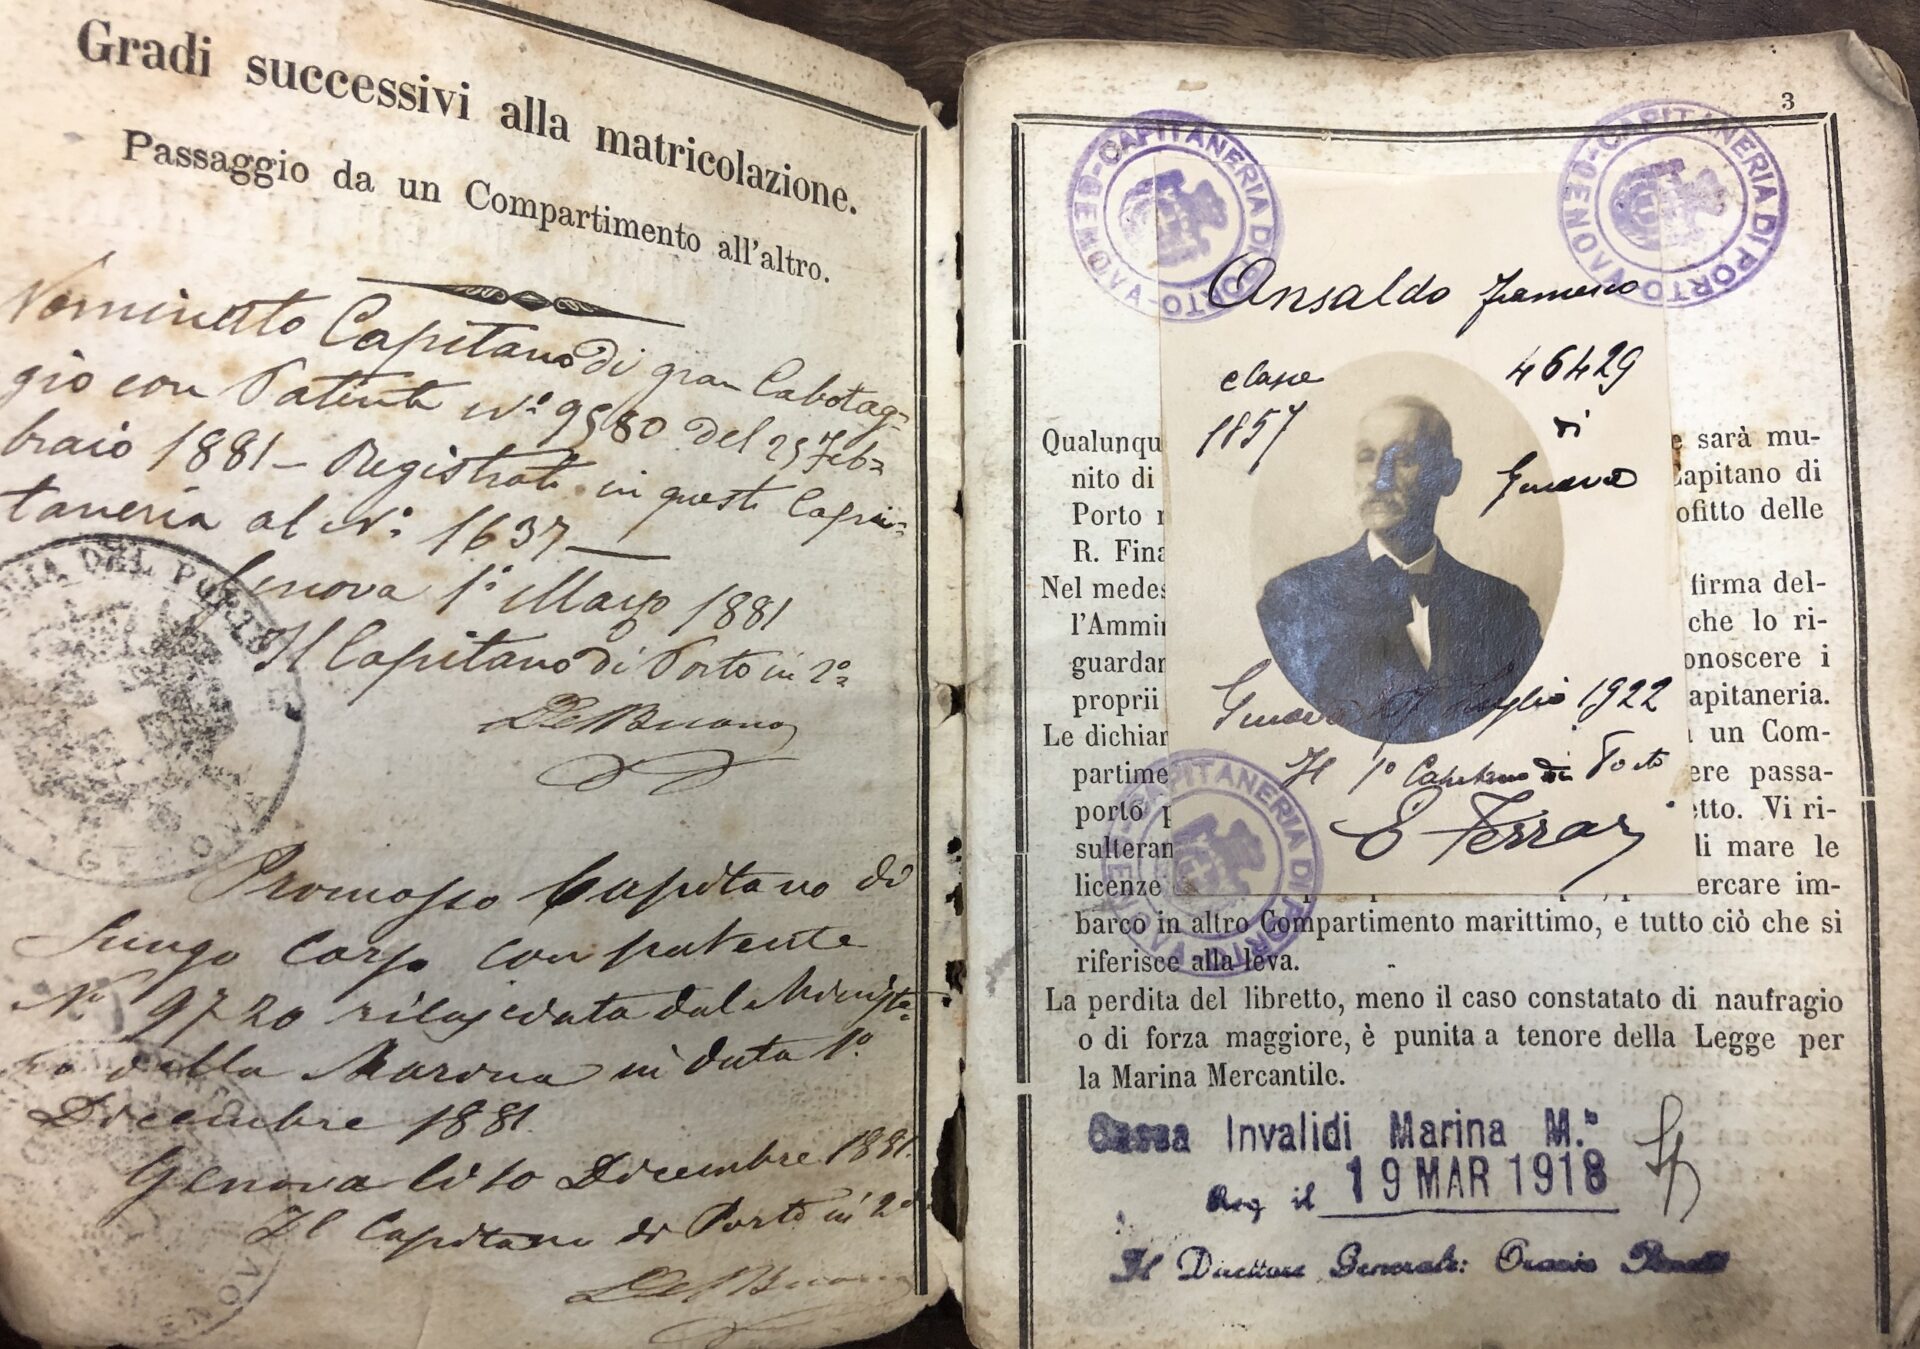 Gradi successivi alla matricolazione.
Passaggio da un Compartimento all'altro.
Nominato Capitano di gran Cabotag=
gio con Patente N.° 9580 del 25 Feb=
braio 1881 — Registrata in questa Capi=
taneria al N.° 1637 —
Genova 1° Marzo 1881
Il Capitano di Porto in 2a
De Buono
CAPITANERIA DEL PORTO
DI GENOVA
Promosso Capitano di
Lungo Corso con patente
N° 9720 rilasciata dal Ministe=
ro della Marina in data 1°
Dicembre 1881.
Genova li 10 Dicembre 1881.
Il Capitano di Porto in 2a
De Buono
3
CAPITANERIA DI PORTO - GENOVA
CAPITANERIA DI PORTO - GENOVA
Ansaldo Francesco
classe 46429
1857 di
Genova
Genova Luglio 1922
Il 1° Capitano di Porto
E Ferrar
CAPITANERIA DI PORTO - GENOVA
Qualunqu e sarà mu-
nito di Capitano di
Porto ofitto delle
R. Fina
Nel medes firma del-
l'Ammi che lo ri-
guardan onoscere i
proprii apitaneria.
Le dichiar un Com-
partime ere passa-
porto p etto. Vi ri-
sulteran di mare le
licenze ercare im-
barco in altro Compartimento marittimo, e tutto ciò che si
riferisce alla leva.
La perdita del libretto, meno il caso constatato di naufragio
o di forza maggiore, è punita a tenore della Legge per
la Marina Mercantile.
Cassa Invalidi Marina M.
Reg il 19 MAR 1918
Il Direttore Generale: Orazio